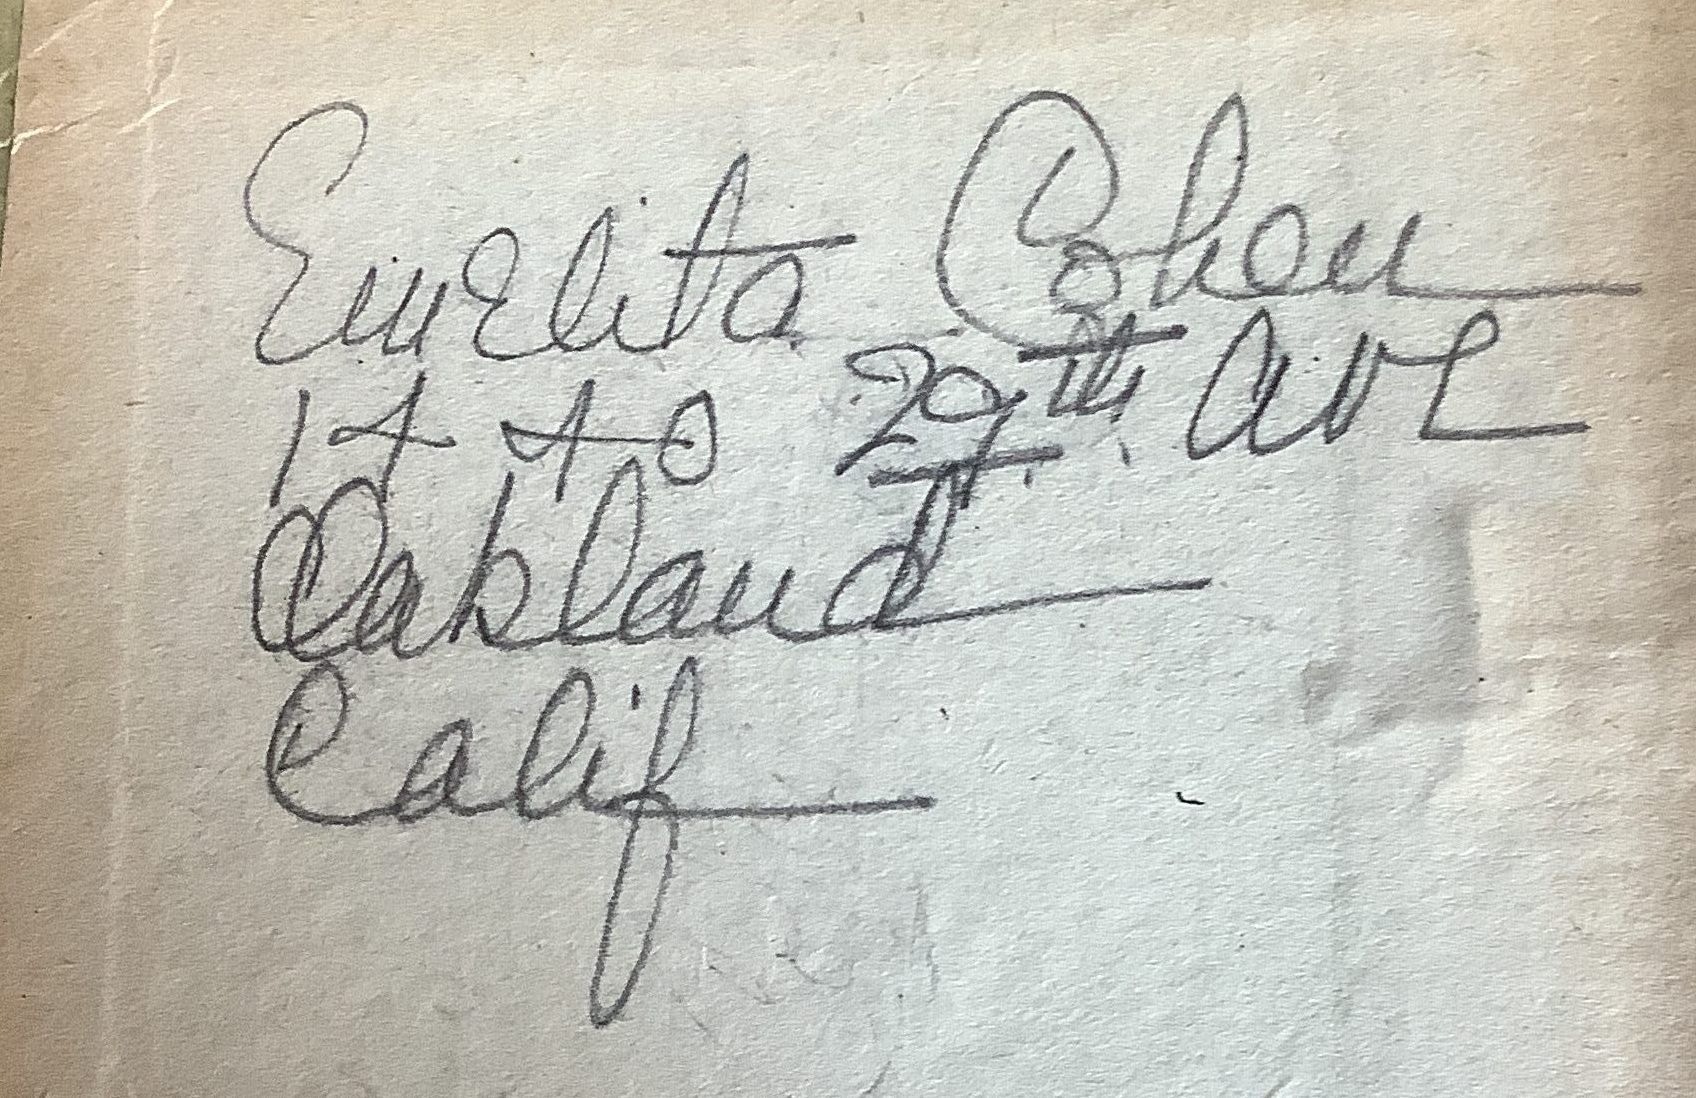 Emelita Cohen
1440 29th Ave
Oakland
Calif